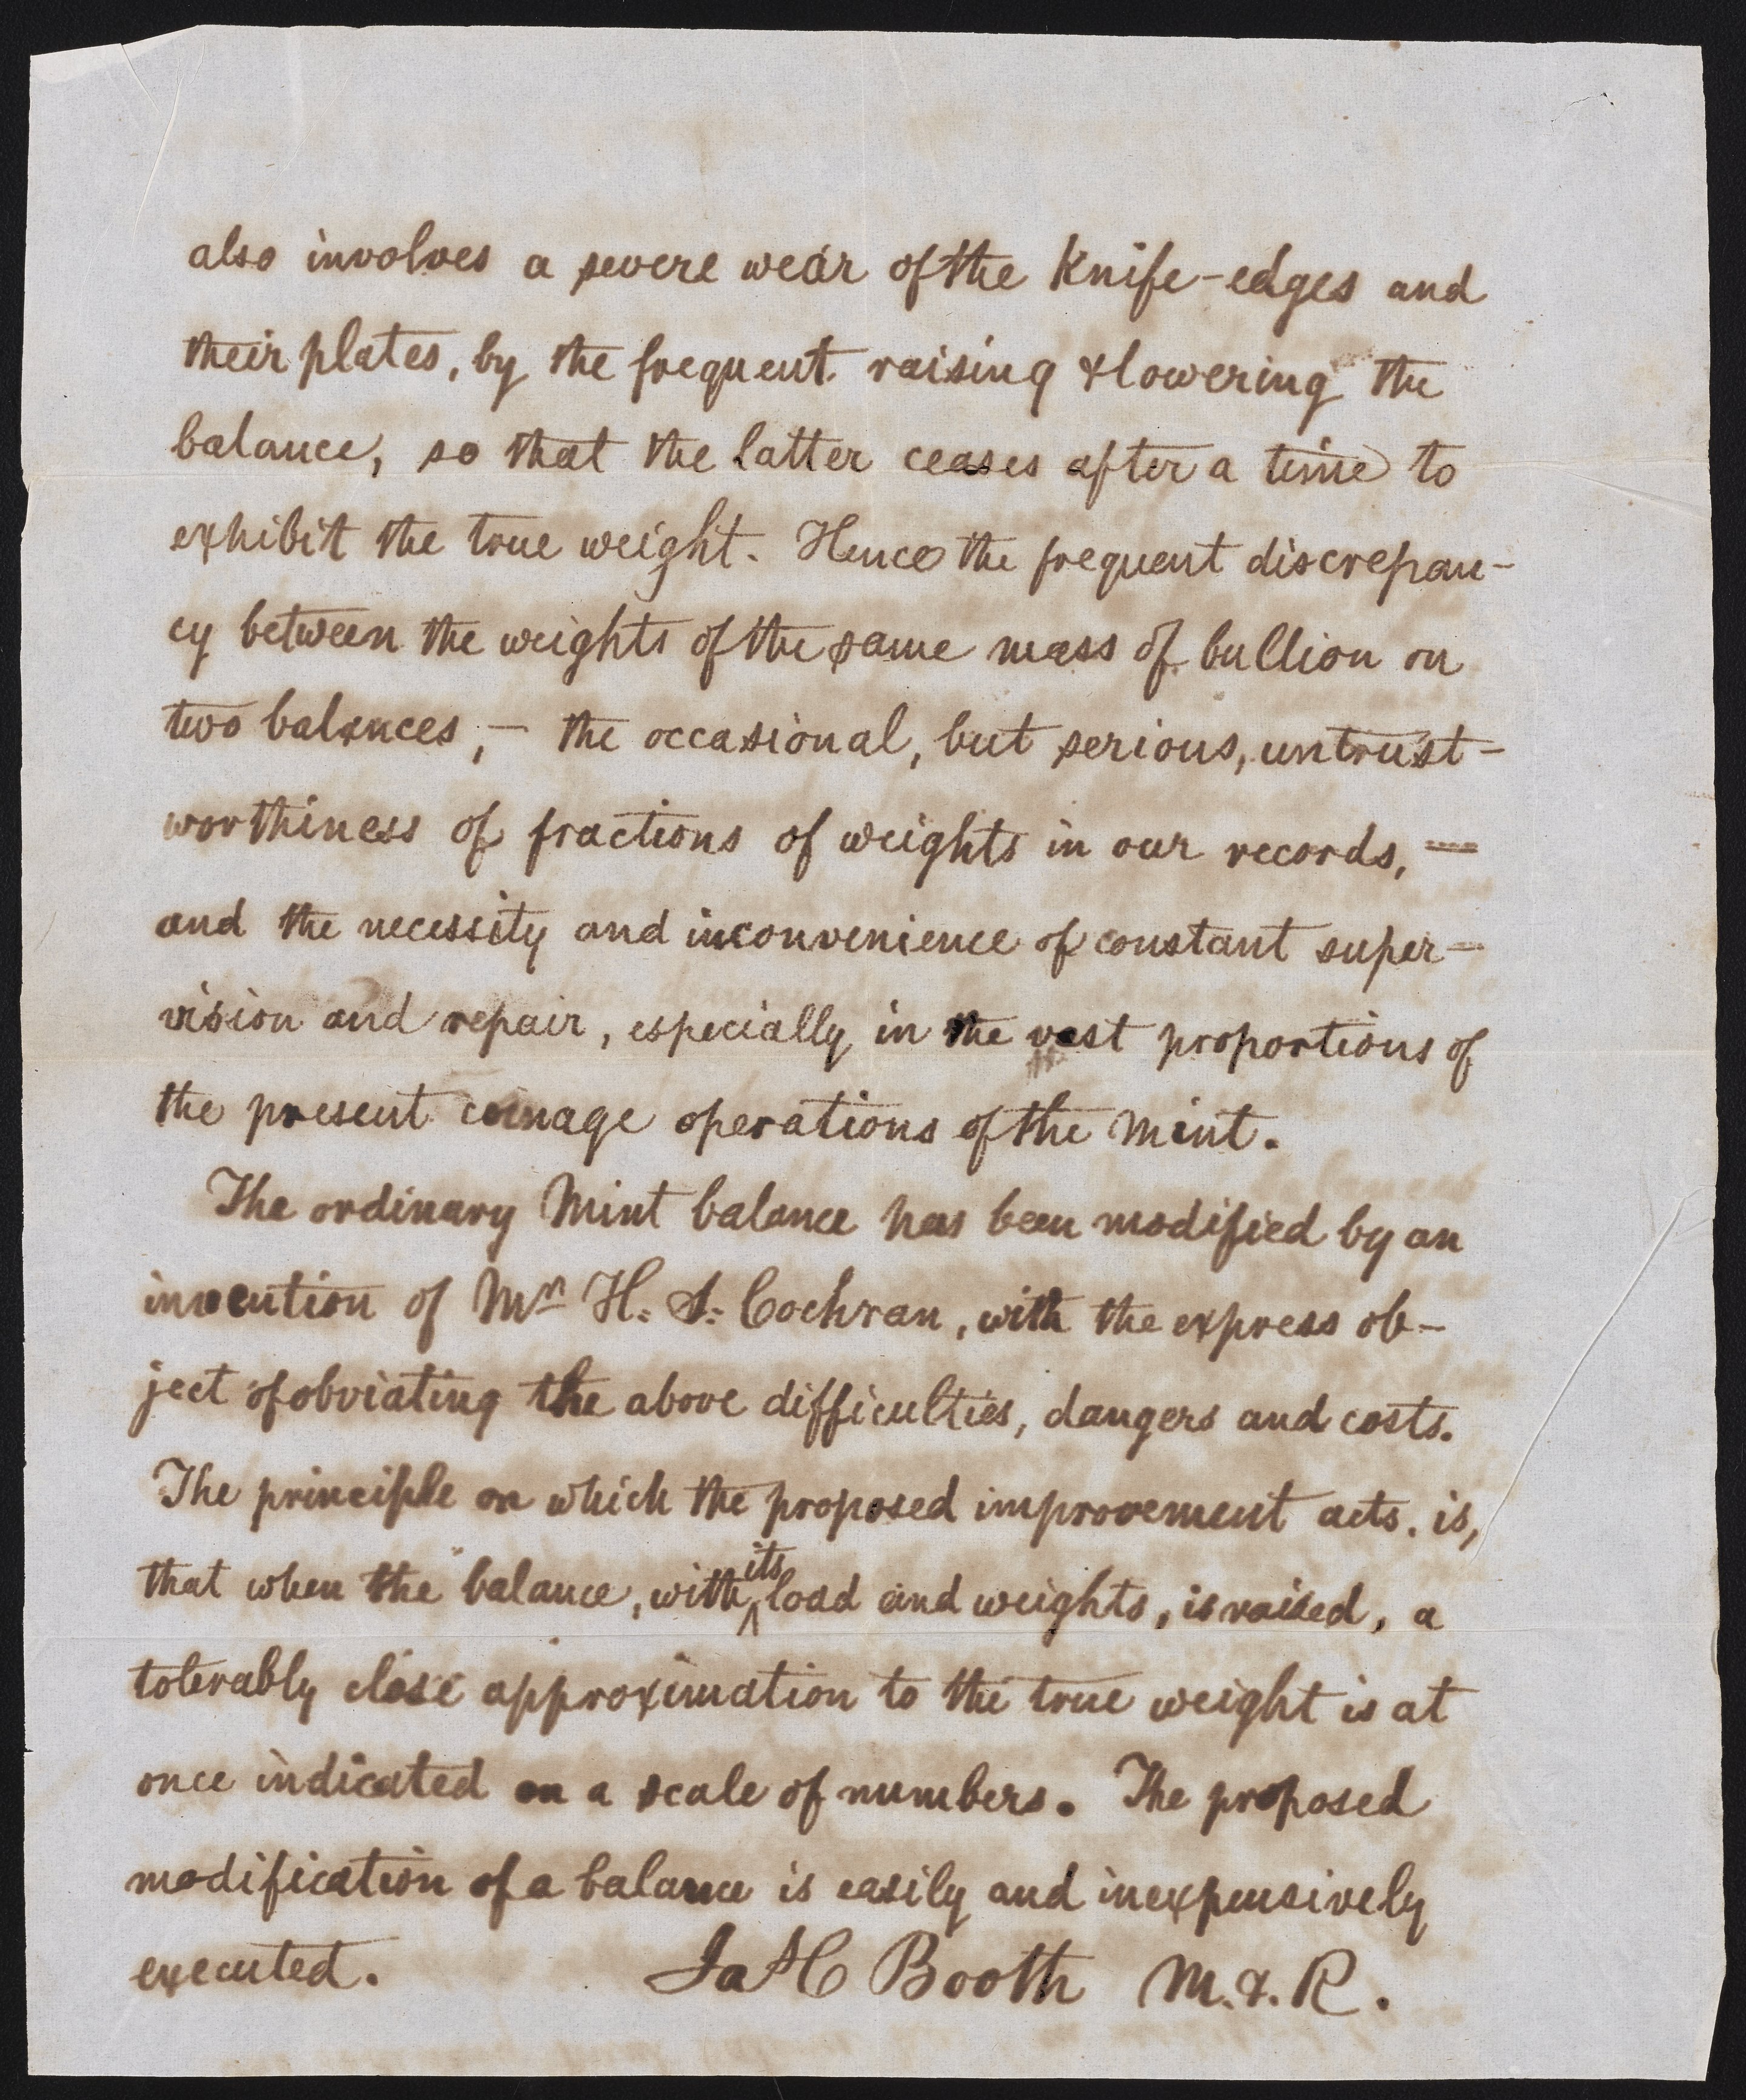 also involves a severe wear of the Knife-edges and
their plates, by the frequent raising & lowering the
balance, so that the latter ceases after a time to
exhibit the true weight. Hence the frequent discrepan-
cy between the weights of the same mass of bullion on
two balances, - the occasional, but serious, untrust-
worthiness of fractions of weights in our records, —
and the necessity and inconvenience of constant super-
vision and repair, especially in the vast proportions of
the present coinage operations of the Mint.
The ordinary Mint balance has been modified by an
invention of Mr H. S. Cochran, with the express ob-
ject of obviating the above difficulties, dangers and costs.
The principle on which the proposed improvement acts, is,
that when the balance, with its load and weights, is raised, a
tolerably close approximation to the true weight is at
once indicated on a scale of numbers. The proposed
modification of a balance is easily and inexpensively
executed. Ja H Booth M. & R.